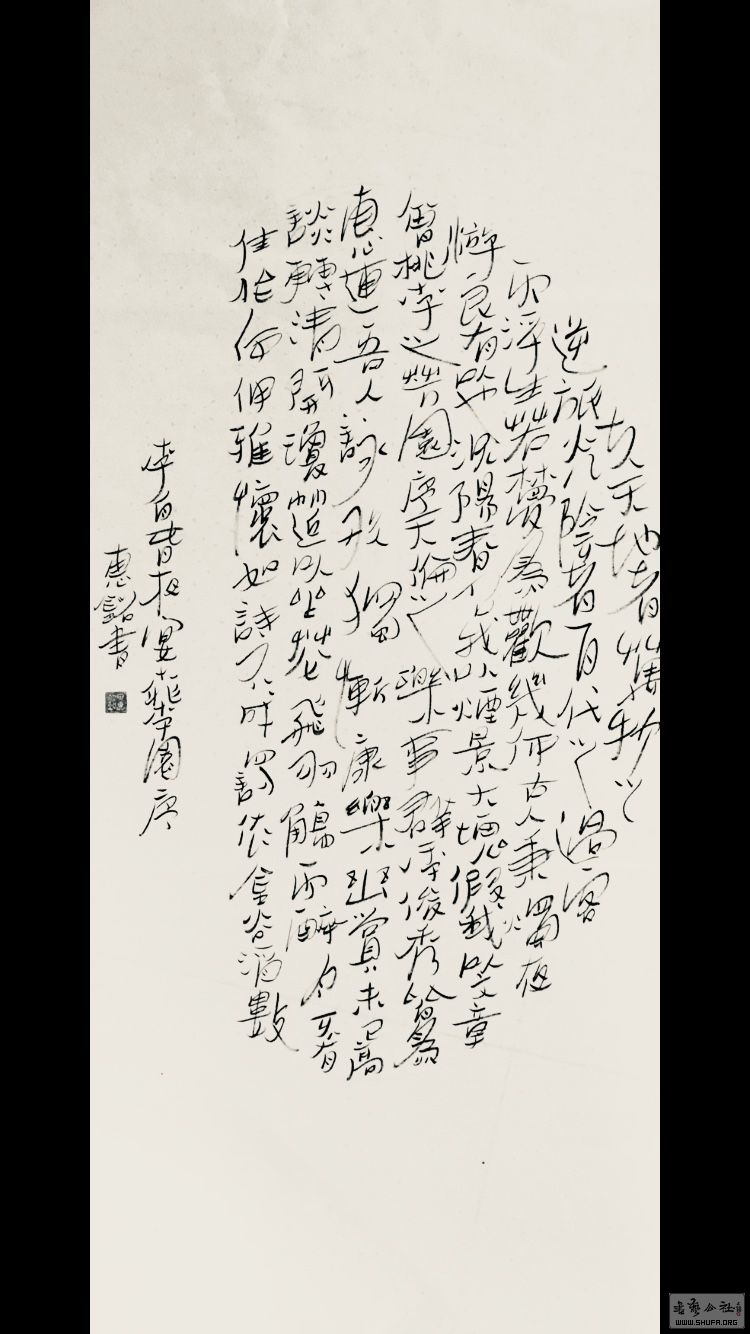 夫天地者萬物之
逆旅光陰者百代之過客
而浮生若夢為歡幾何古人秉燭夜
遊良有以況陽春召我以煙景大塊假我以文章
會桃李之芳園序天倫之樂事群季俊秀皆為
惠連吾人詠歌獨慚康樂幽賞未已高
談轉清開瓊筵以坐花飛羽觴而醉月不有
佳作何伸雅懷如詩不成罰依金谷酒數
李白春夜宴桃李園序
惠銘書
WWW.SHUFA.ORG